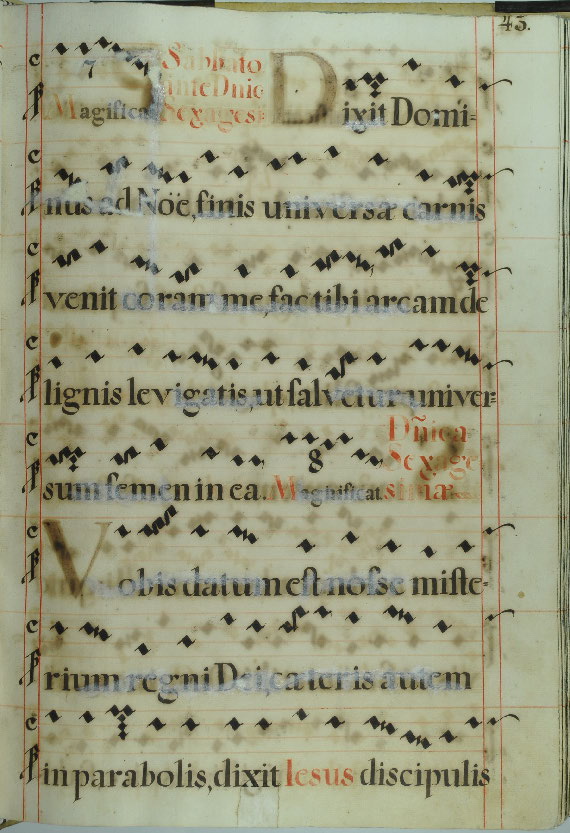 43.
7 Sabbato
ante Dnic
Magifica Sexages: Dixit Domi-
nus ad Nöe, finis universæ carnis
venit coram me, fac tibi arcam de
lignis levigatis, ut salvetur univer-
sum semen in ea. 8 Magnificat. Dñica
Sexage
simæ
Vobis datum est nosse miste-
rium regni Dei, cæteris autem
in parabolis, dixit Iesus discipulis